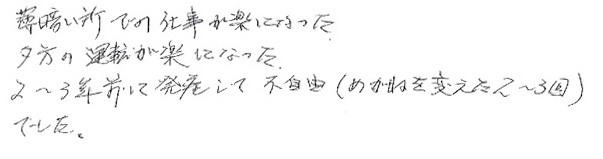 薄暗い所での仕事が楽になった
夕方の運転が楽になった.
2～3年前に発症して不自由(めがねを変えた2～3回)
でした。